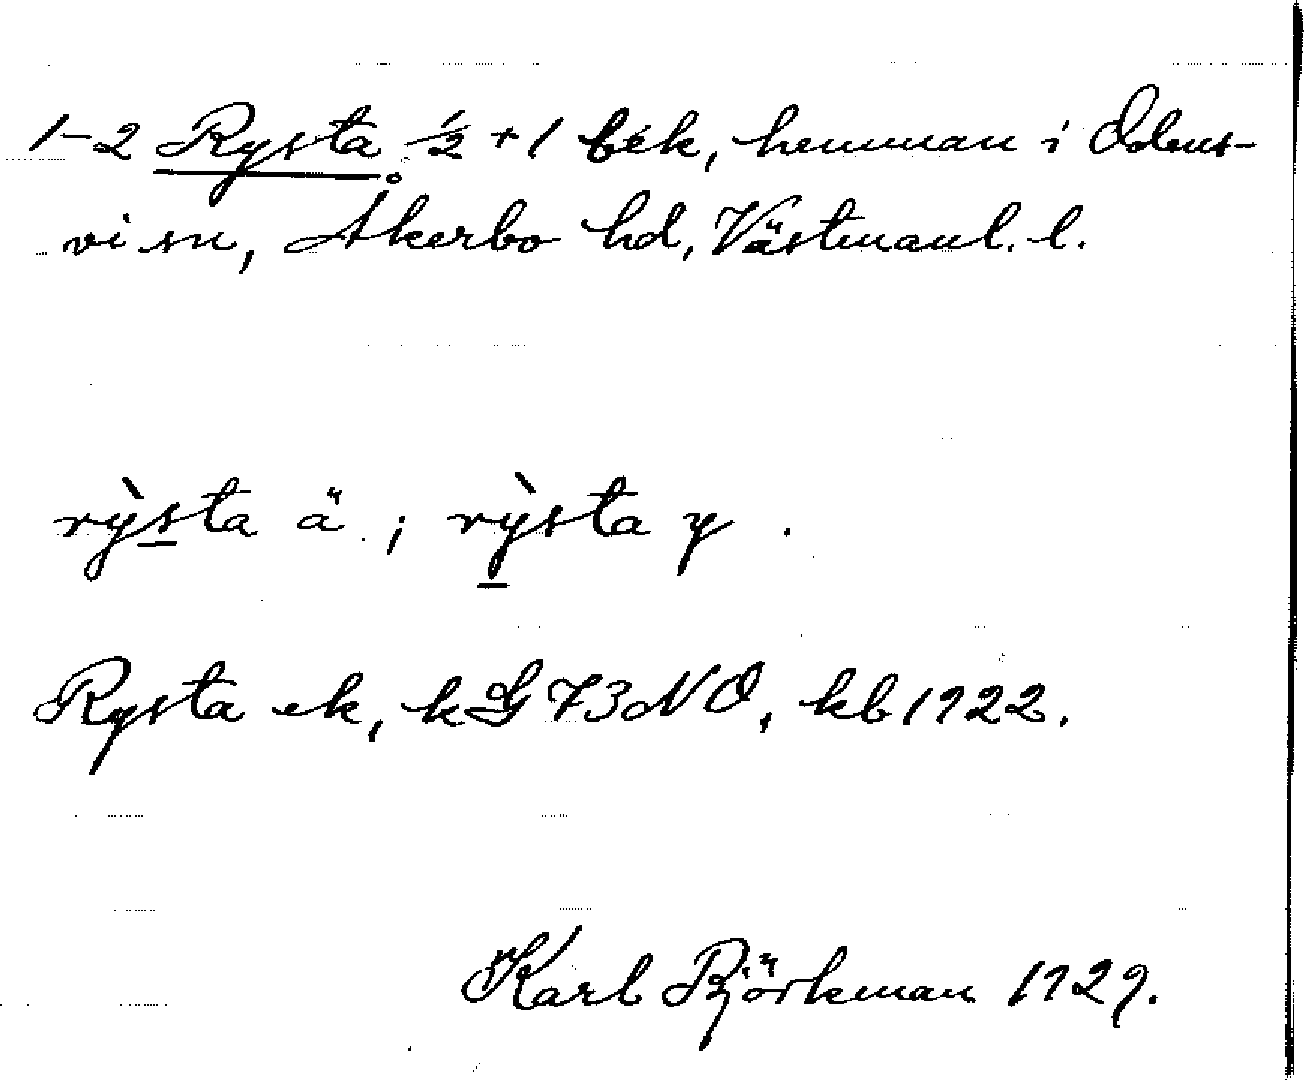 1-2 Rysta ½ + 1 bek, hemman i Odens-
vi sn, Åkerbo hd, Västmanl. l.
rỳsta ä ; rỳsta y .
Rysta ek, k G 73 NO, kb 1922.
Karl Björkman 1929.